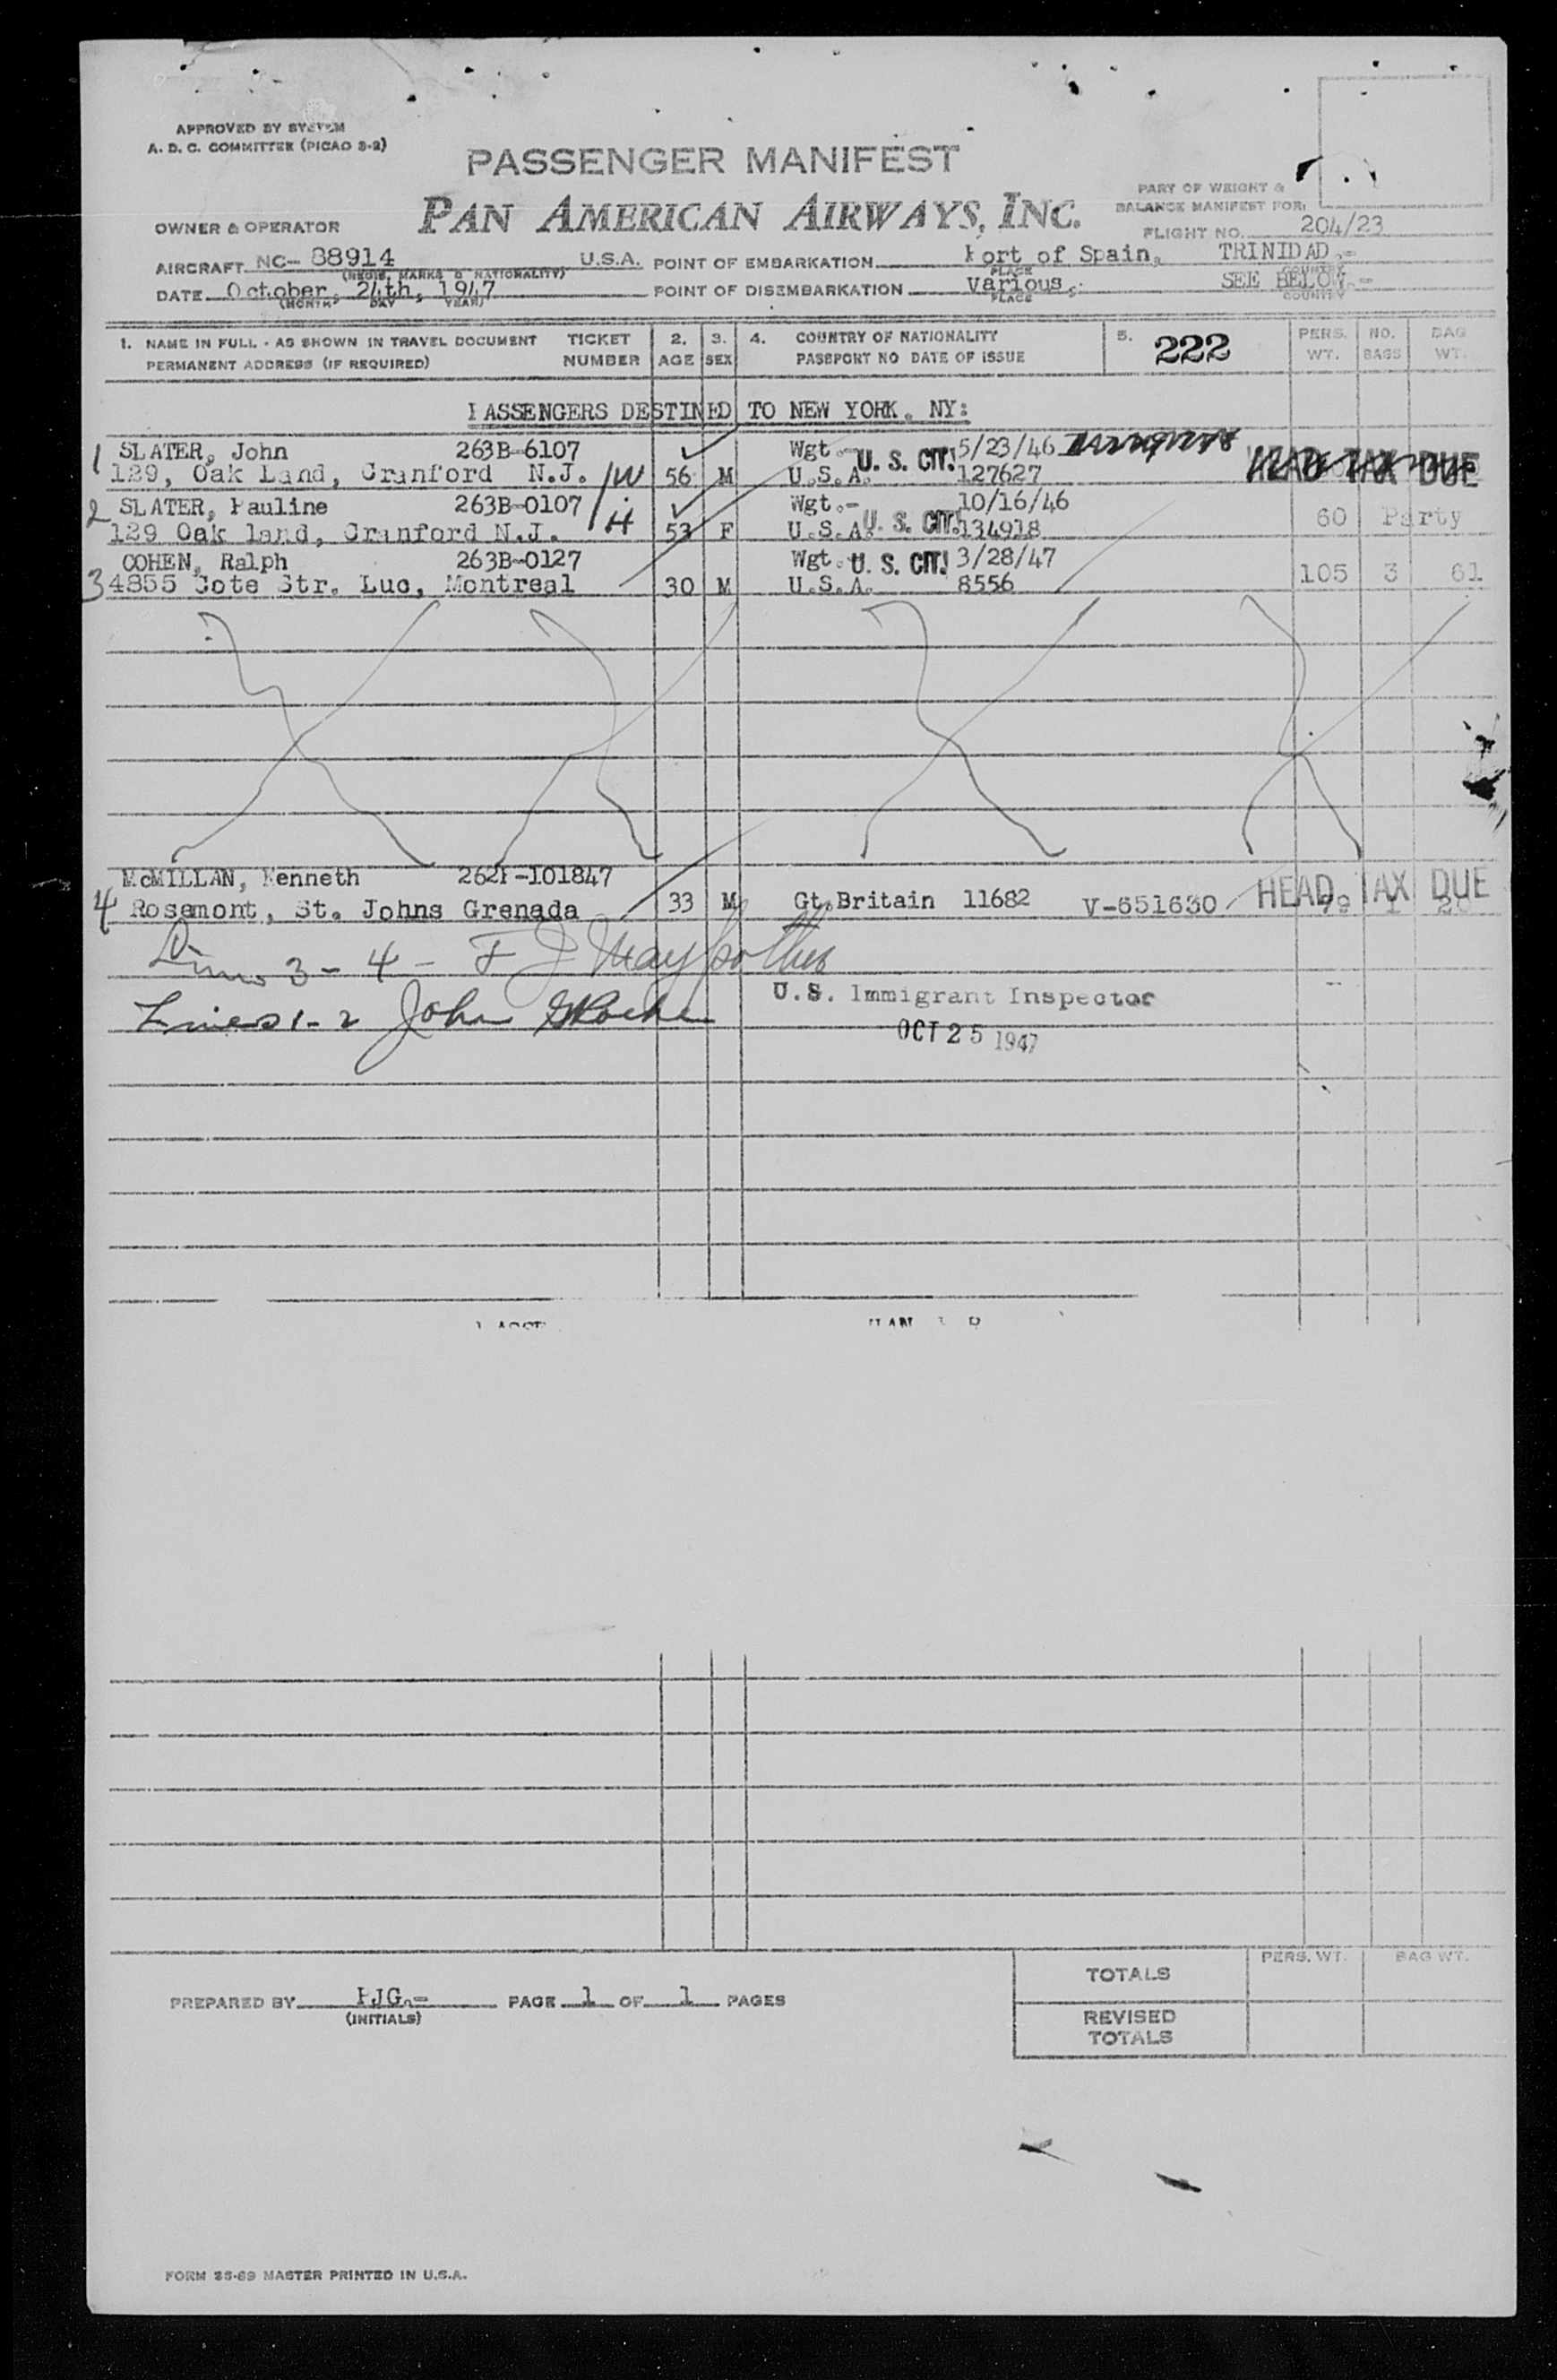 APPROVED BY SYSTEM
A. D. C. COMMITTEE (PICAO 3-2)
PASSENGER MANIFEST
PAN AMERICAN AIRWAYS, INC.
PART OF WEIGHT &
BALANCE MANIFEST FOR:
OWNER & OPERATOR
FLIGHT NO. 204/23
AIRCRAFT NC- 88914 U.S.A. POINT OF EMBARKATION Port of Spain, TRINIDAD.-
(REGIS. MARKS & NATIONALITY) PLACE COUNTRY
DATE October, 24th, 1947 POINT OF DISEMBARKATION Various. SEE BELOW.-
(MONTH DAY YEAR) PLACE COUNTRY
1. NAME IN FULL - AS SHOWN IN TRAVEL DOCUMENT TICKET 2. 3. 4. COUNTRY OF NATIONALITY 5. 222 PERS. NO. BAG
PERMANENT ADDRESS (IF REQUIRED) NUMBER AGE SEX PASSPORT NO DATE OF ISSUE WT. BAGS WT.
PASSENGERS DESTINED TO NEW YORK. NY:
1 SLATER, John 263B-6107 Wgt.- U. S. CIT. 5/23/46
129, Oak Land, Cranford N.J. /W 56 M U.S.A. 127627 HEAD TAX DUE
2 SLATER, Pauline 263B-0107 Wgt.- 10/16/46
129 Oak land, Cranford N.J. /H 53 F U.S.A. U. S. CIT. 134918 60 Party
COHEN, Ralph 263B-0127 Wgt. U. S. CIT. 3/28/47
3 4855 Cote Str. Luc, Montreal 30 M U.S.A. 8556 105 3 61
McMILLAN, Kenneth 262F-101847
4 Rosemont, St. Johns Grenada 33 M Gt.Britain 11682 V-651630 HEAD TAX DUE 1
Lines 3 - 4 - F J
U.S. Immigrant Inspector
Lines 1-2 John
OCT 25 1947
TOTALS PERS. WT. BAG WT.
PREPARED BY PJG.- PAGE 1 OF 1 PAGES
(INITIALS)
REVISED
TOTALS
FORM 25-69 MASTER PRINTED IN U.S.A.